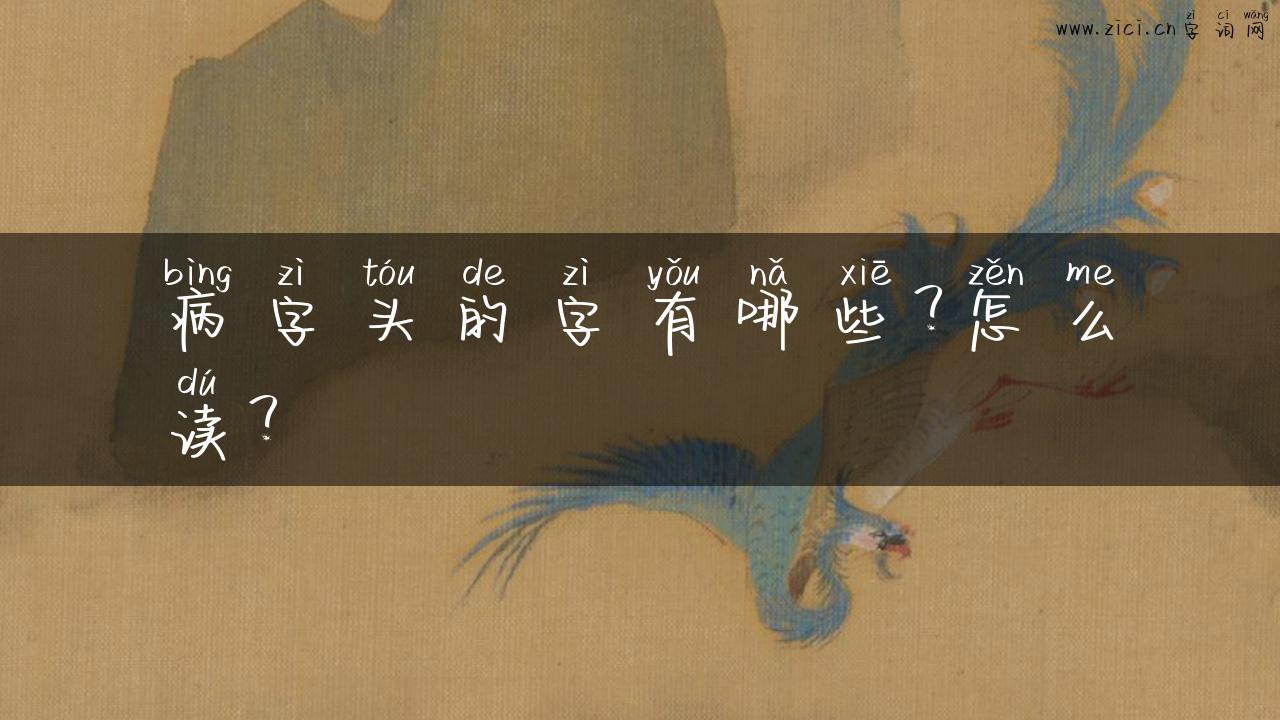 www.zici.cn zì cí wǎng
字词网
bìng zì tóu de zì yǒu nǎ xiē zěn me
病字头的字有哪些？怎么
dú
读？